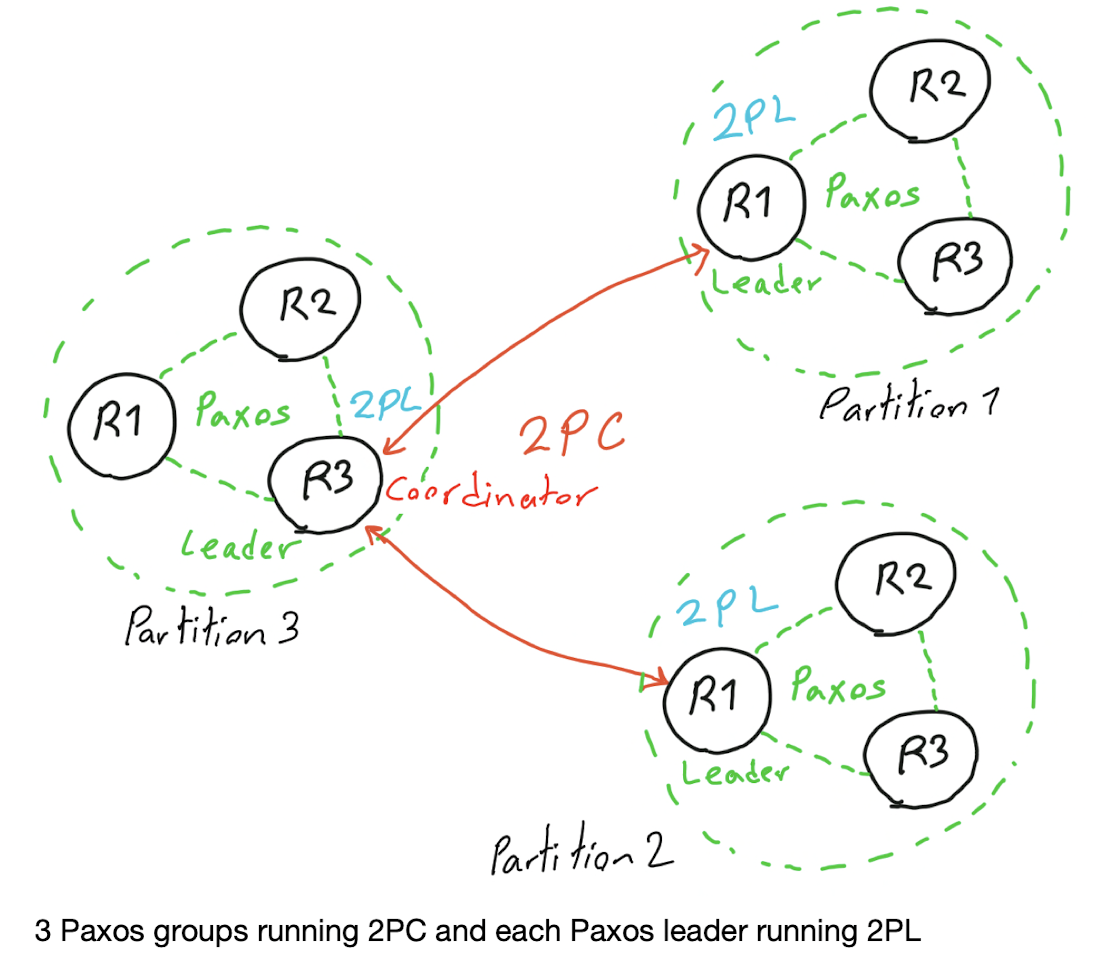 R2
2PL
R1
Paxos
R3
Leader
Partition 1
R2
R1
Paxos
2PL
R3
Coordinator
Leader
Partition 3
2PC
R2
2PL
R1
Paxos
R3
Leader
Partition 2
3 Paxos groups running 2PC and each Paxos leader running 2PL